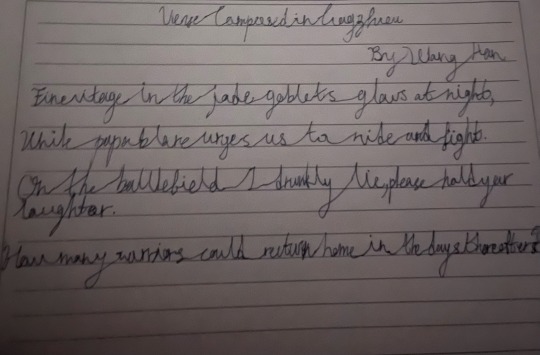 Verse Composed in Liagzhou
By Wang Han
Fine vitage in the jade goblets glows at night,
While papa blare urges us to ride and fight.
On the battlefield I drunkly lie, please hold your
laughter.
How many warriors could return home in the days thereafters?